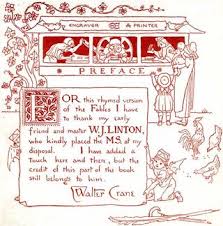 ENGRAVER & PRINTER
PREFACE
FOR this rhymed version
of the Fables I have
to thank my early
friend and master W.J. LINTON,
who kindly placed the M.S. at my
disposal. I have added a
touch here and there, but the
credit of this part of the book
still belongs to him.
Walter Crane